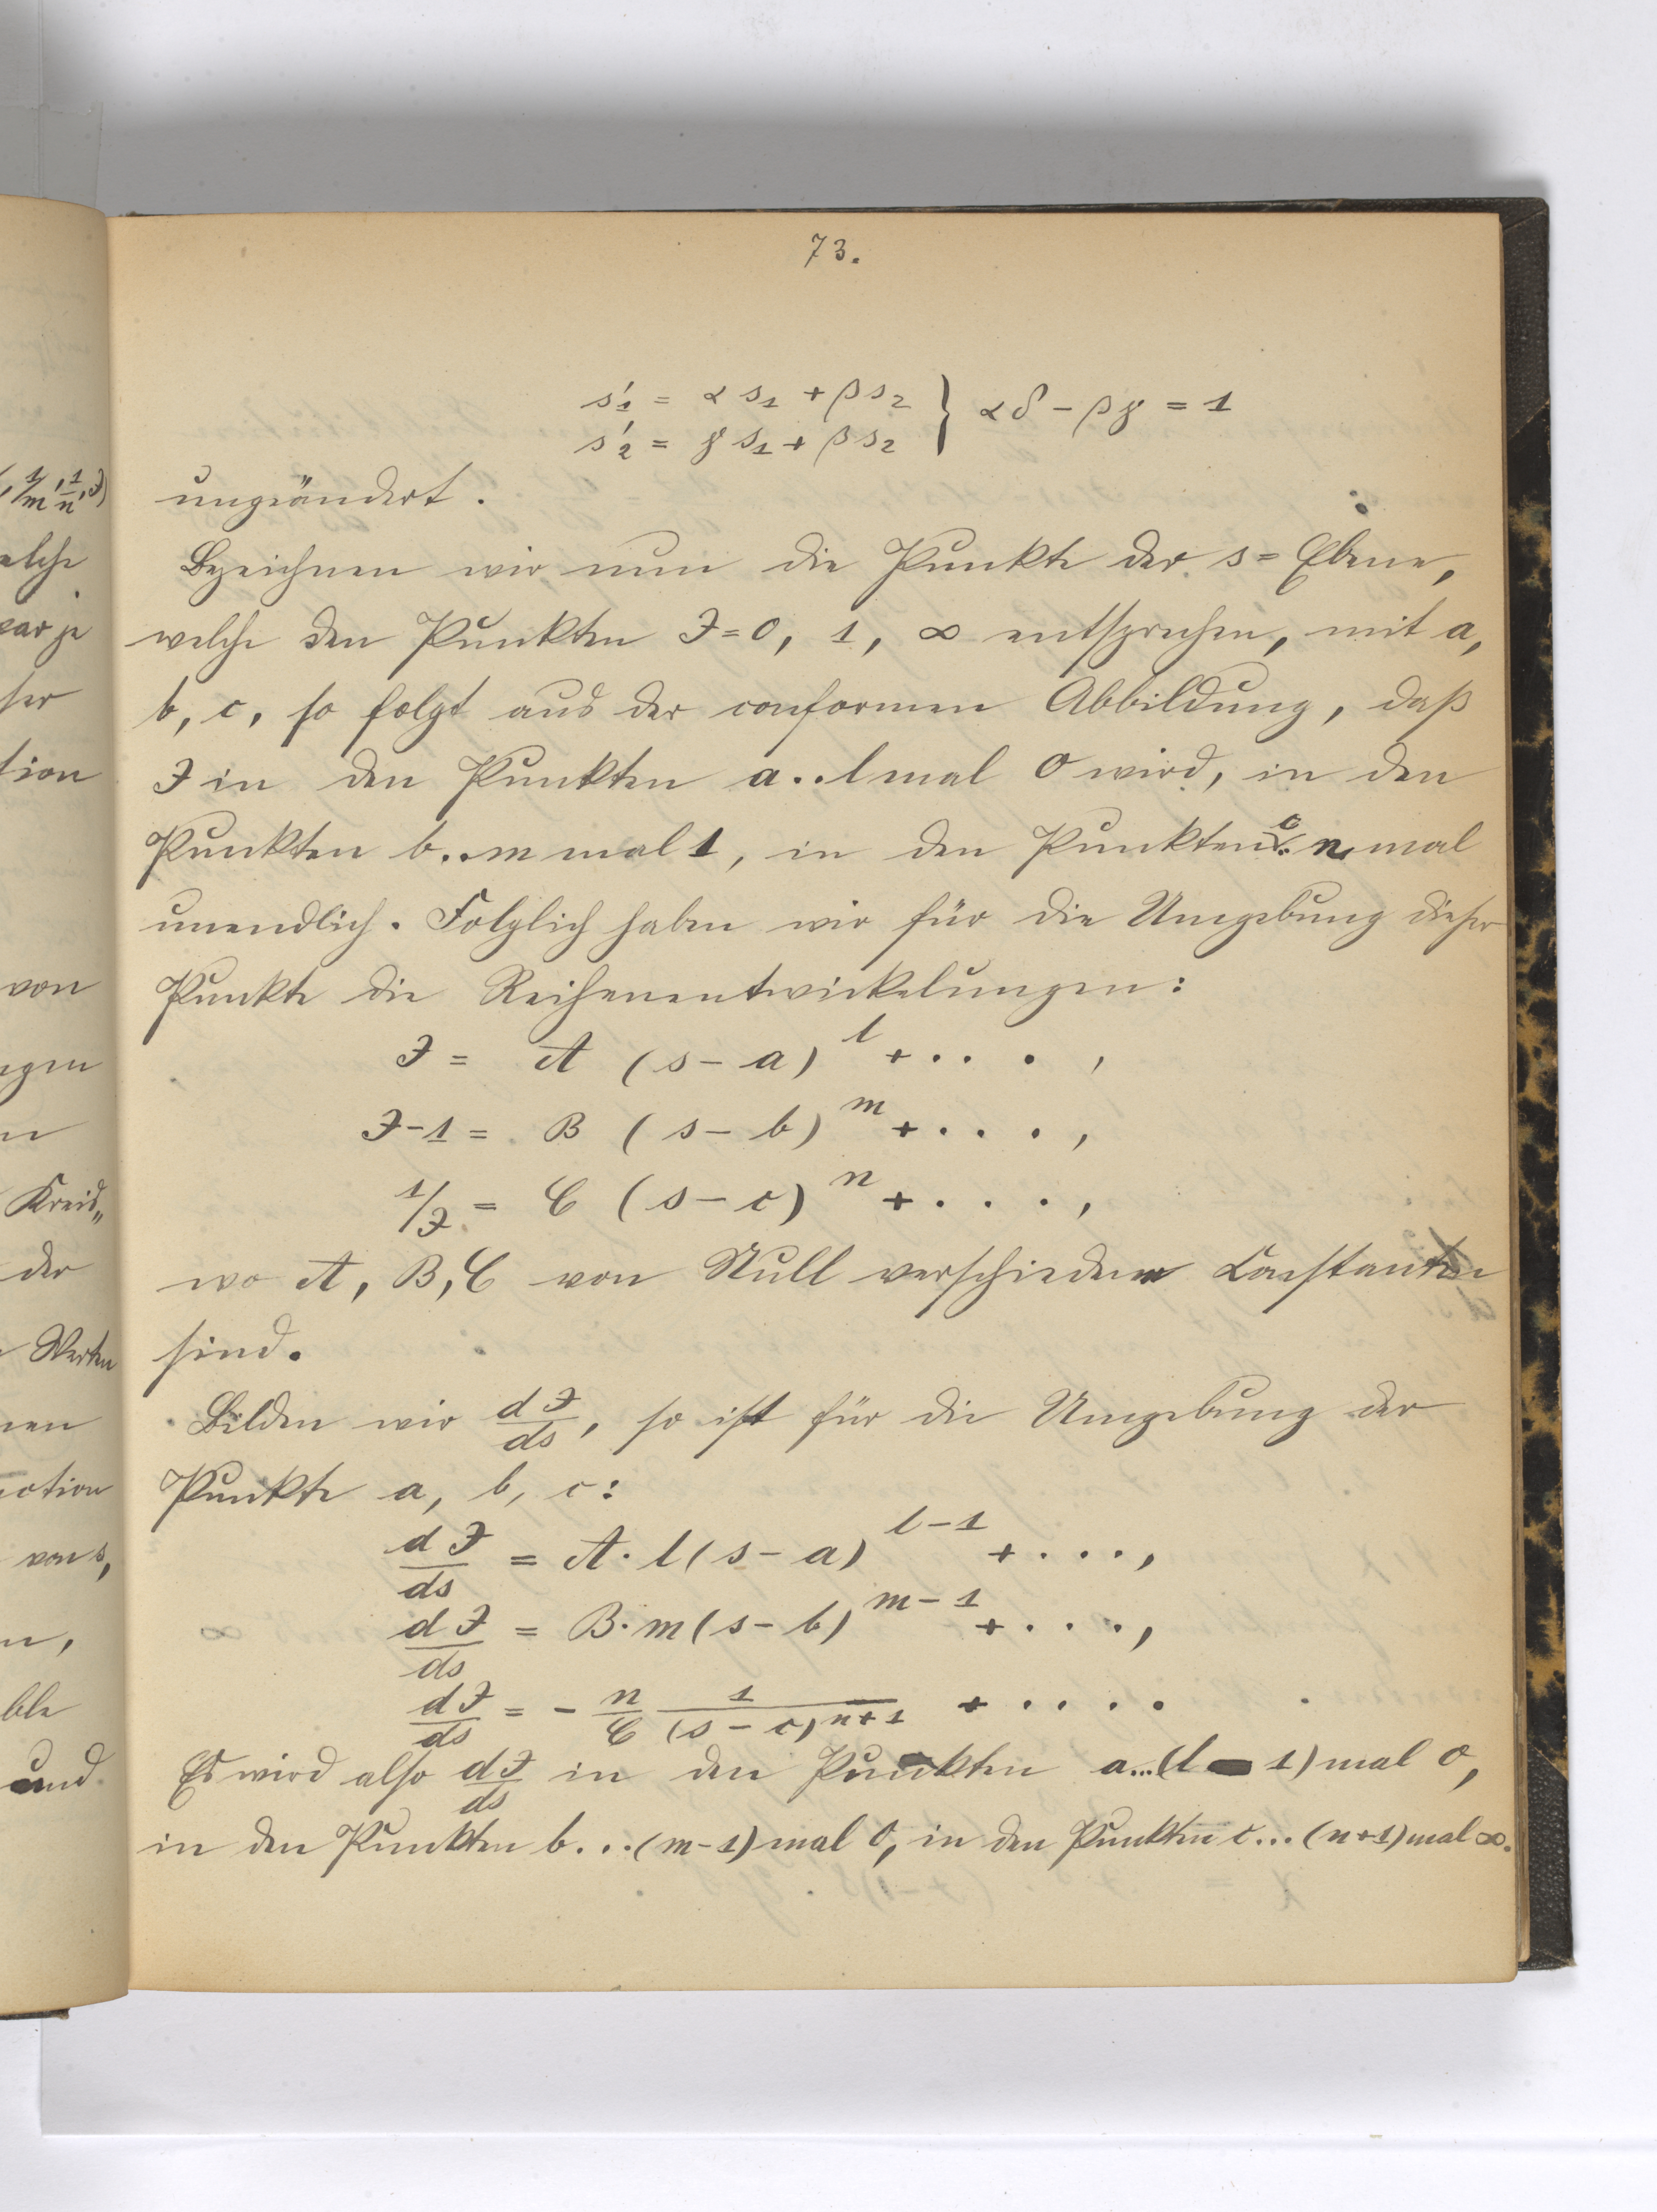 73.
s₁' = α s₁ + β s₂ } αδ − βγ = 1
s₂' = γ s₁ + β s₂
ungeändert.
Bezeichnen wir nun die Punkte der s = Ebene,
welche den Punkten J = 0, 1, ∞ entsprechen, mit a,
b, c, so folgt aus der conformen Abbildung, daß
J in den Punkten a..l mal 0 wird, in den
Punkten b..m mal 1, in den Punkten c.. n mal
unendlich. Folglich haben wir für die Umgebung dieser
Punkte die Reihenentwickelungen:
J = A (s − a)^l + · · · ,
J − 1 = B (s − b)^m + · · · · ,
1/J = C (s − c)^n + · · · · ,
wo A, B, C von Null verschiedene Constanten
sind.
Bilden wir dJ/ds, so ist für die Umgebung der
Punkte a, b, c:
dJ/ds = A · l (s − a)^{l−1} + · · · · ,
dJ/ds = B · m (s − b)^{m−1} + · · · · ,
dJ/ds = − n/C 1/(s − c)^{n+1} + · · · ·
Es wird also dJ/ds in den Punkten a...(l − 1) mal 0,
in den Punkten b...(m−1) mal 0, in den Punkten c...(n+1) mal ∞.
von
Kreis„
der
Werten
von s,
und